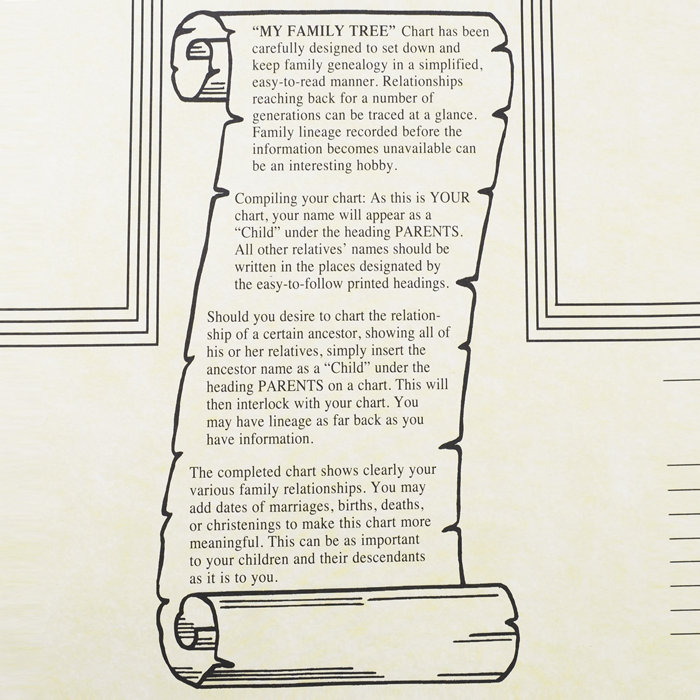 “MY FAMILY TREE” Chart has been
carefully designed to set down and
keep family genealogy in a simplified,
easy-to-read manner. Relationships
reaching back for a number of
generations can be traced at a glance.
Family lineage recorded before the
information becomes unavailable can
be an interesting hobby.
Compiling your chart: As this is YOUR
chart, your name will appear as a
“Child” under the heading PARENTS.
All other relatives’ names should be
written in the places designated by
the easy-to-follow printed headings.
Should you desire to chart the relation-
ship of a certain ancestor, showing all of
his or her relatives, simply insert the
ancestor name as a “Child” under the
heading PARENTS on a chart. This will
then interlock with your chart. You
may have lineage as far back as you
have information.
The completed chart shows clearly your
various family relationships. You may
add dates of marriages, births, deaths,
or christenings to make this chart more
meaningful. This can be as important
to your children and their descendants
as it is to you.